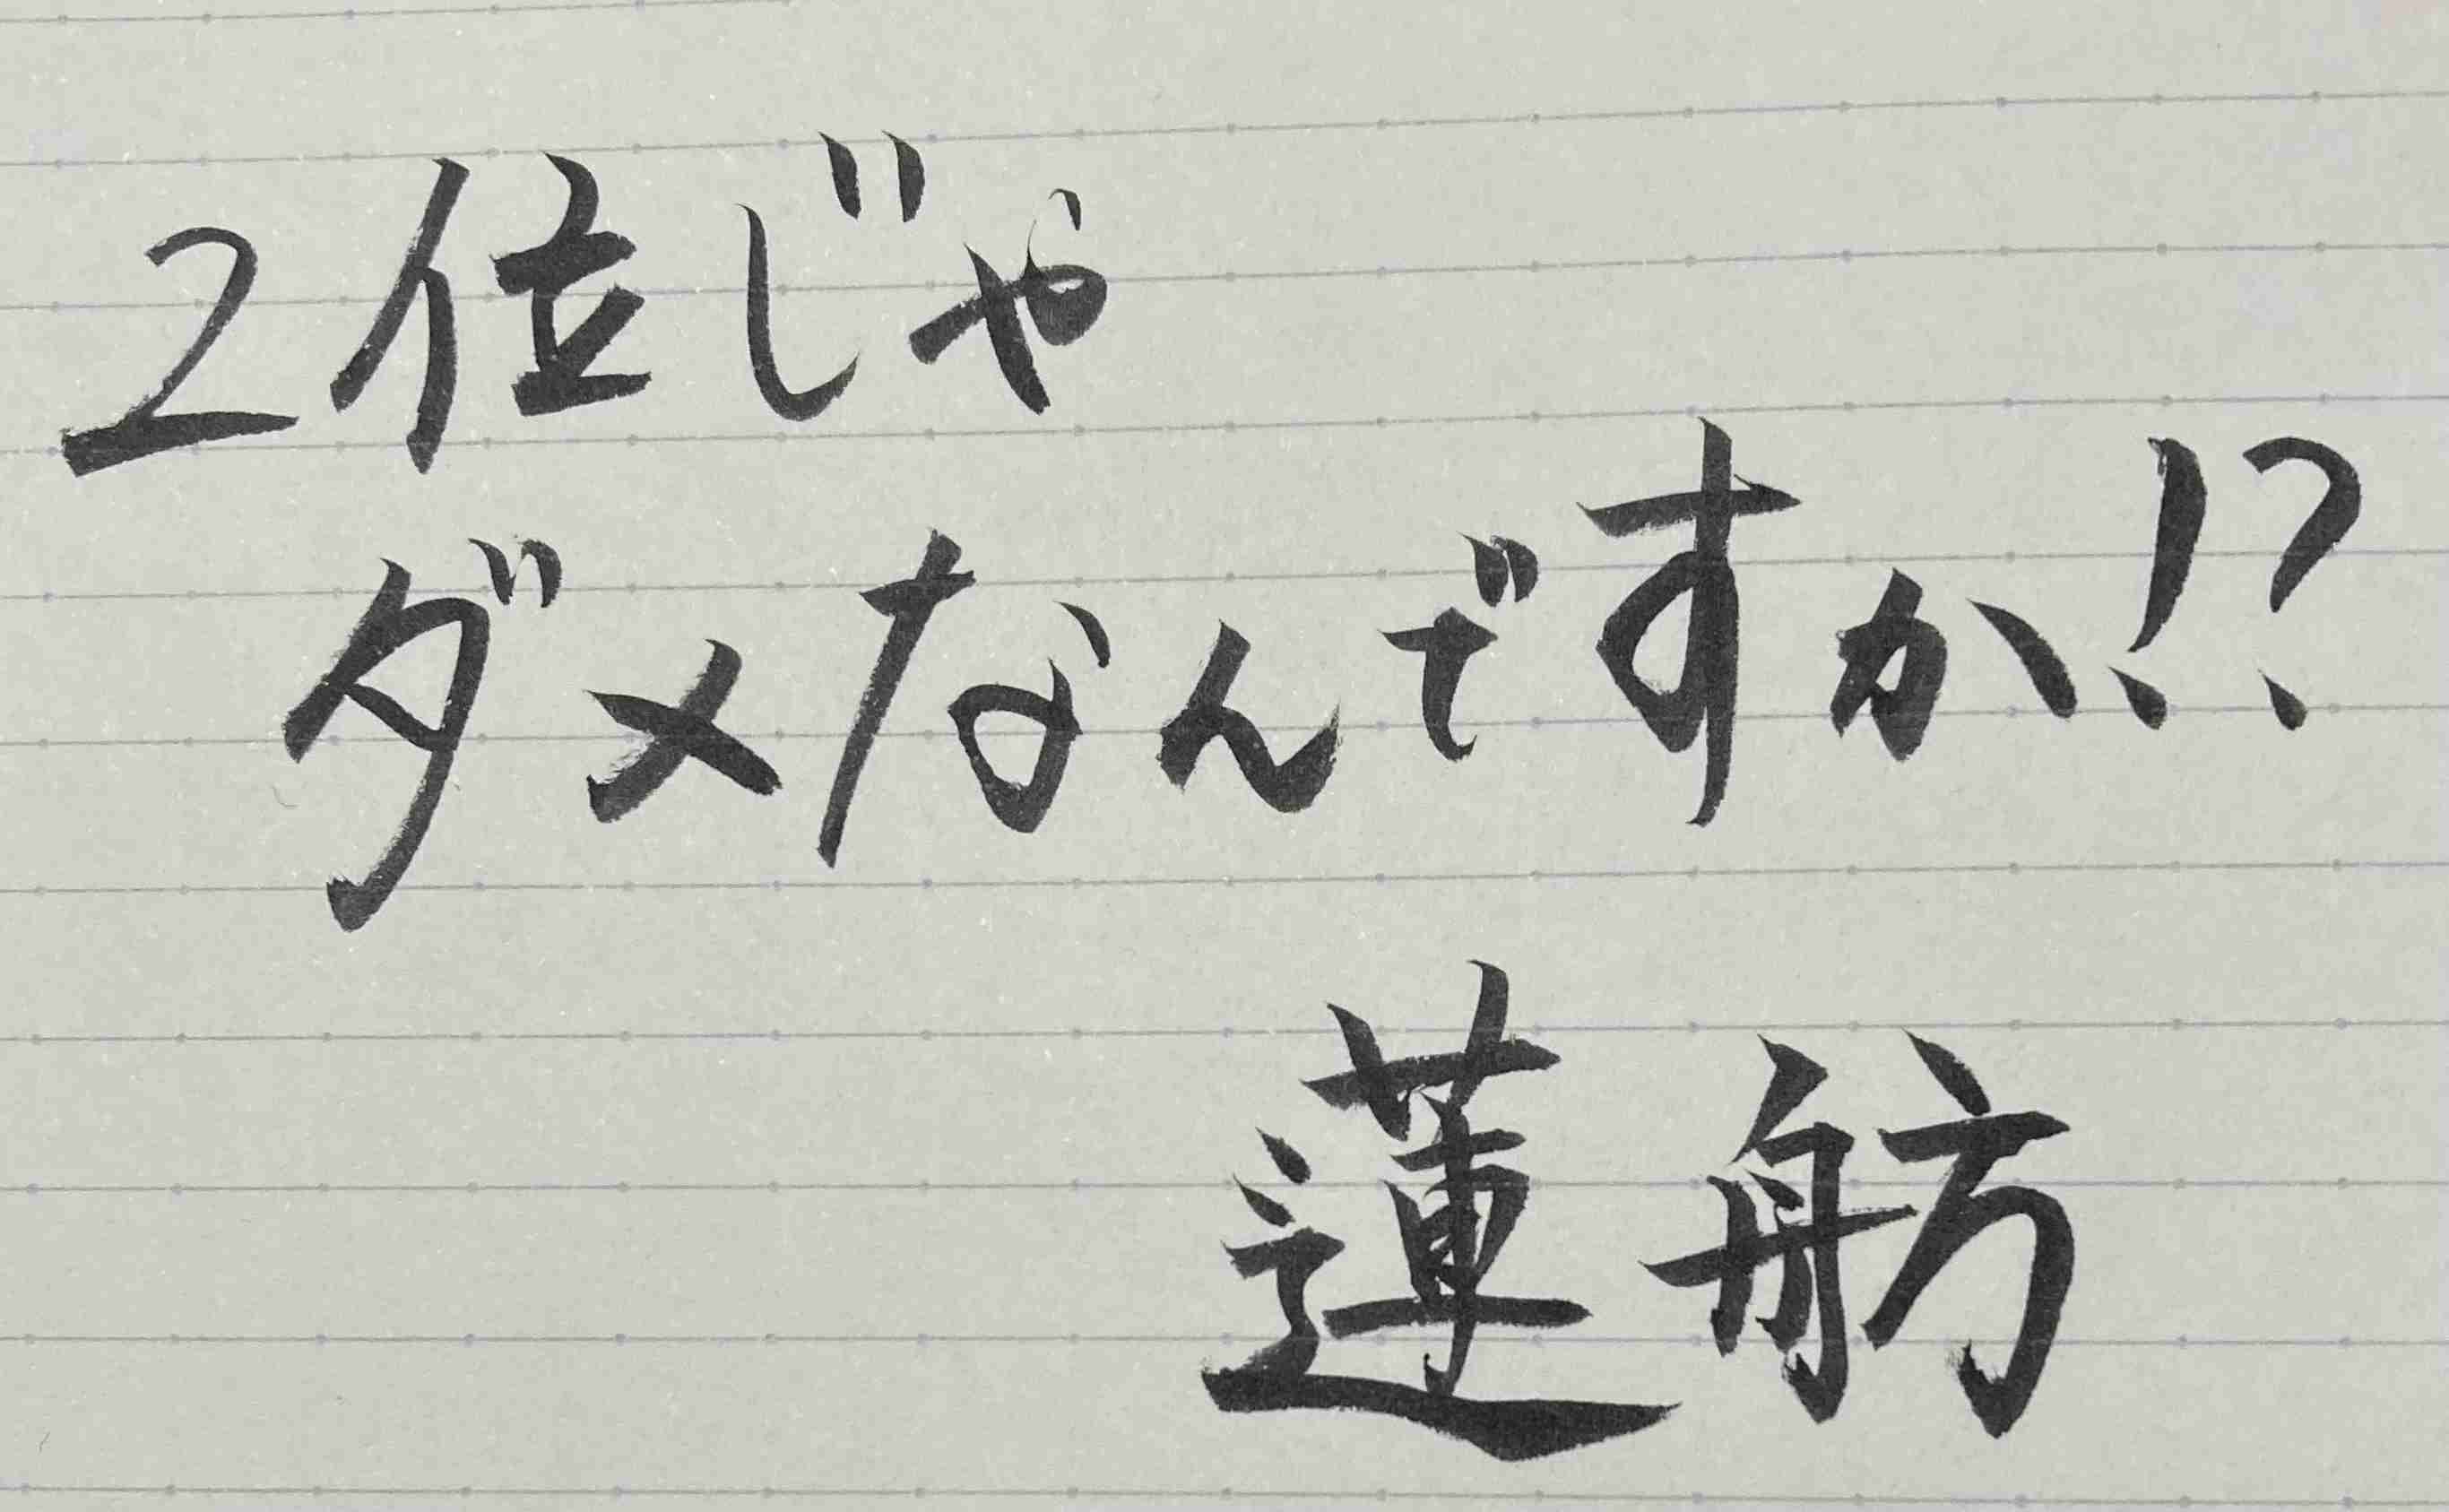 2位じゃ
ダメなんですか!?
蓮舫